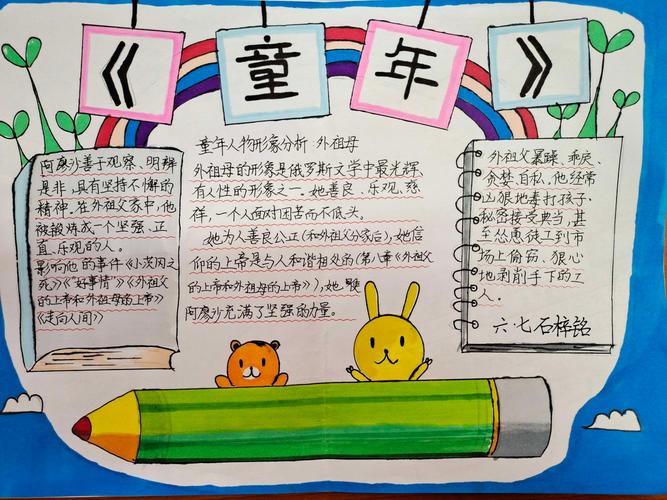 《童年》
阿廖沙善于观察、明辨
是非,具有坚持不懈的
精神。在外祖父家中,他
被锻炼成一个坚强、正
直、乐观的人。
影响他的事件《小茨冈之
死》《"好事情"》《外祖父
的上帝和外祖母的上帝》
《走向人间》
童年人物形象分析 外祖母
外祖母的形象是俄罗斯文学中最光辉、
有人性的形象之一。她善良、乐观、慈
祥,一个人面对困苦而不低头。
她为人善良公正(和外祖父分家后),她信
仰的上帝是与人和谐相处的(第八章《外祖父
的上帝和外祖母的上帝》),她使
阿廖沙充满了坚强的力量。
外祖父暴躁、乖戾、
贪婪、自私,他经常
凶狠地毒打孩子、
秘密接受典当,甚
至怂恿徒工到市
场上偷窃、狠心
地剥削手下的工
人。
六·七石梓铭